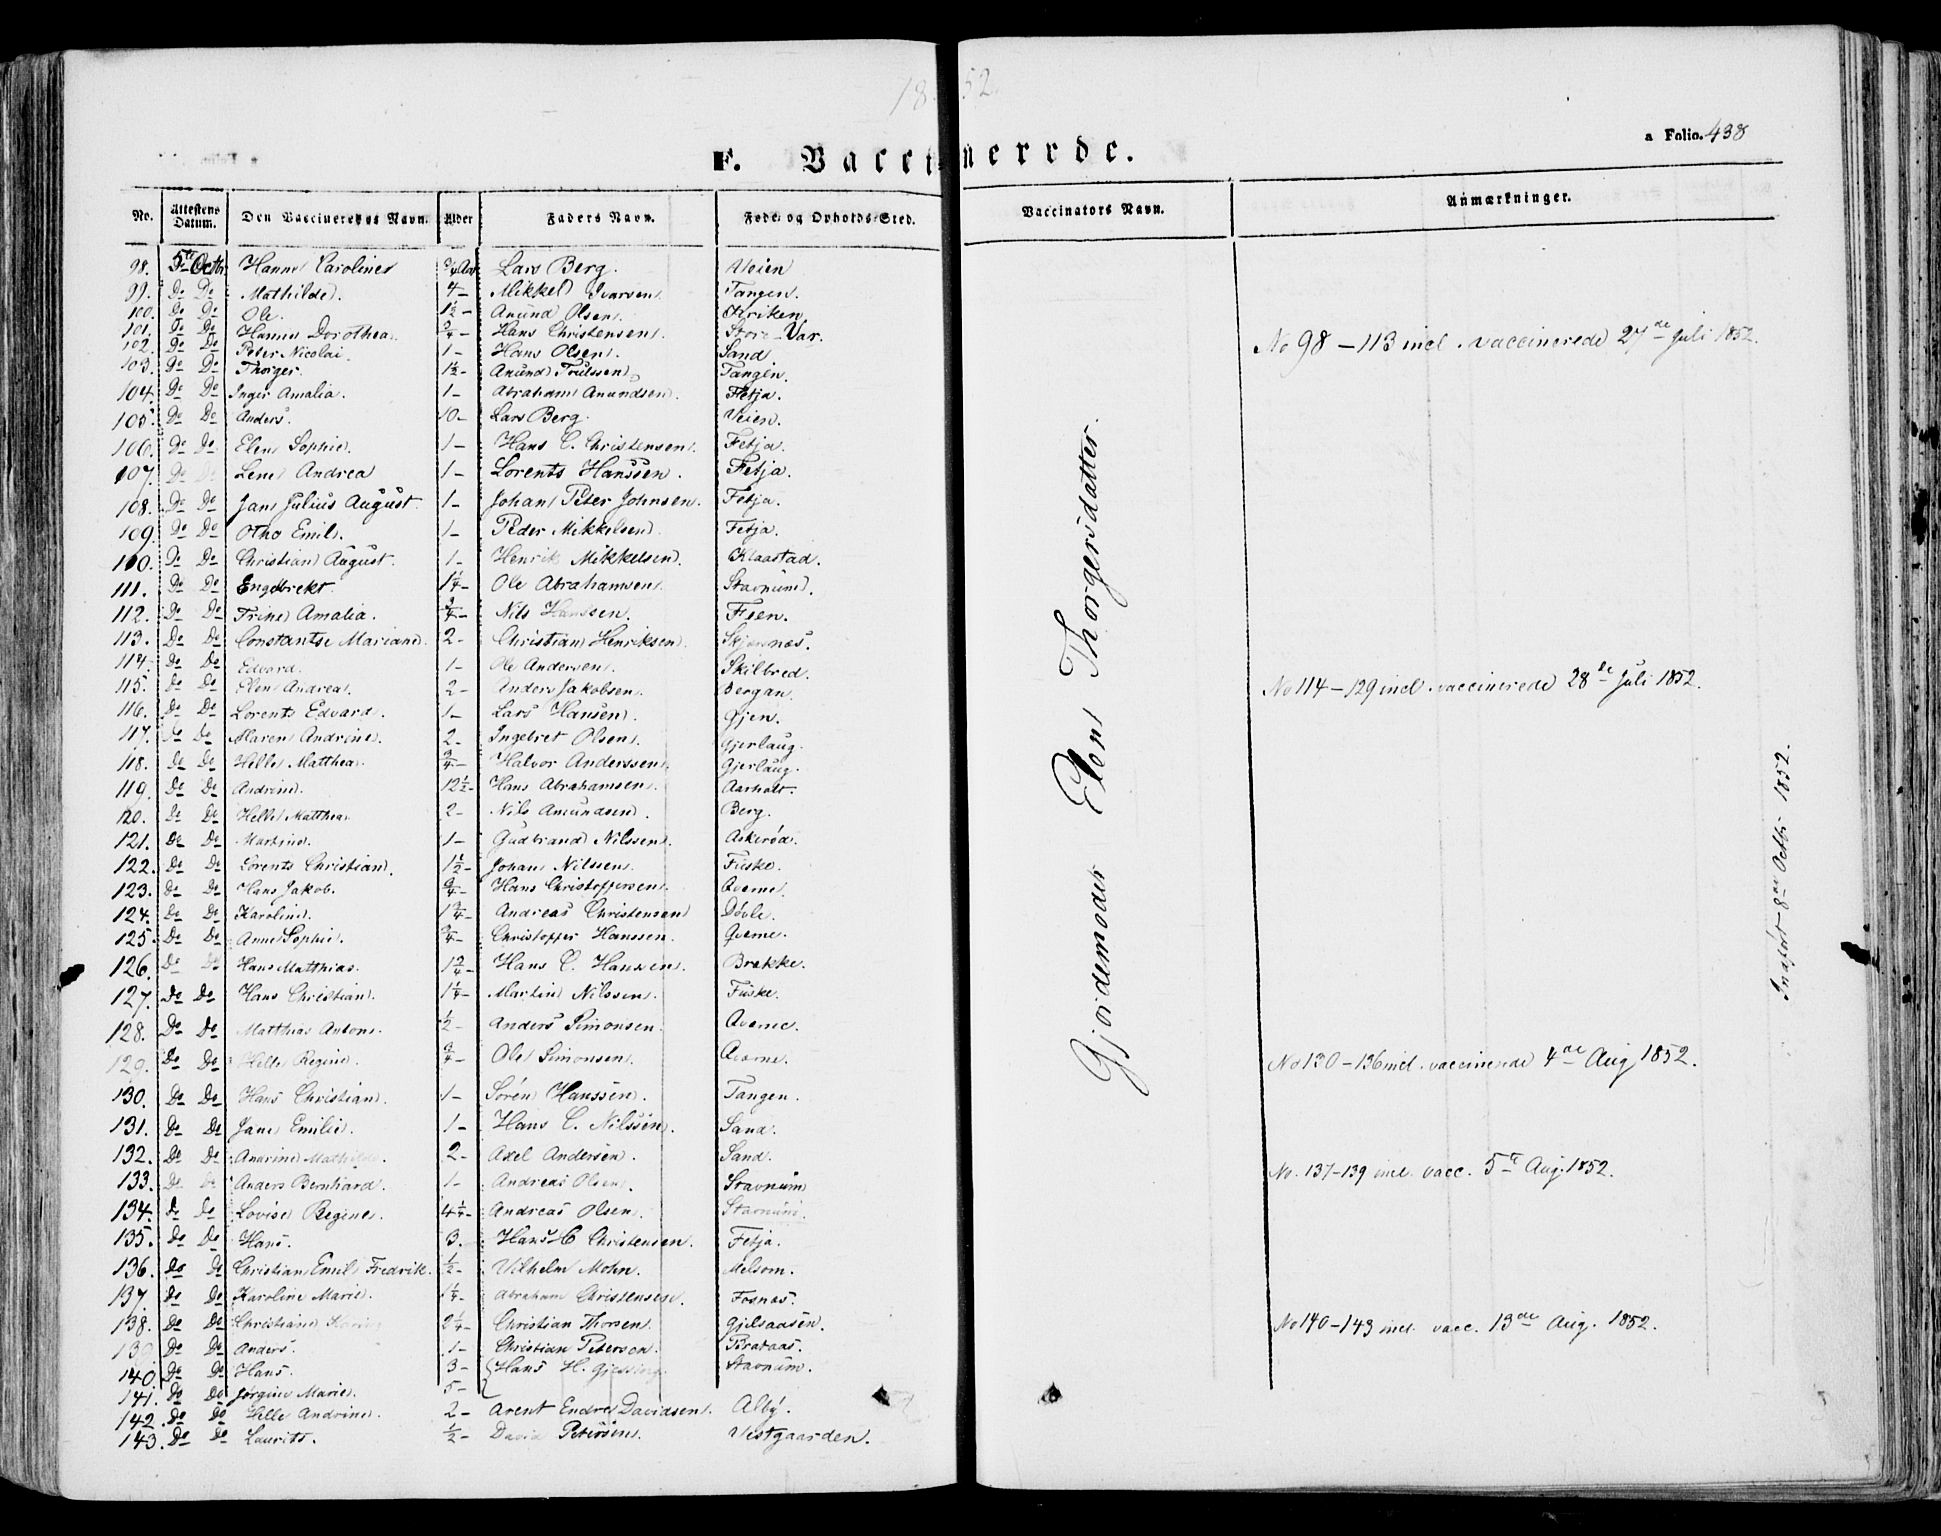 1852.
a Folio. 438
F. Vaccinerede.
No. Attestens Datum. Den Vaccineredes Navn. Alder Faders Navn. Føde- og Opholds-Sted. Vaccinators Navn. Anmærkninger.
98. 5te Octbr Hanne Caroline ¾ Aar Lars Berg. Veien
99. Do Do Mathilde. 4 – Mikkel Ivarsen. Tangen.
100. Do Do Ole. 1½ – Anund Olsen.
101. Do Do Hanne Dorothea. ¾ – Hans Christensen. Store-Var.
102. Do Do Peter Nicolai. 1 – Hans Olsen. Sand
103. Do Do Thorger. 1½ – Anund Tangen.
104. Do Do Inger Amalia. 1 – Abraham Anundsen. Fetja.
105. Do Do Anders. 10 – Lars Berg. Veien.
106. Do Do Elen Sophie. 1 – Hans C. Christensen. Fetja.
107. Do Do Lene Andrea 1 – Lorents Hanssen. Fetja.
108. Do Do Jans Julius August 1 – Johan Peter Johnsen. Fetja.
109. Do Do Otho Emil. 1 – Peder Mikkelsen. Fetja.
110. Do Do Christian August. 1 – Henrik Mikkelsen. Klaastad.
111. Do Do Engebrekt. 1¼ – Ole Abrahamsen. Stavnum.
112. Do Do Trine Amalia. ¾ – Nils Hanssen. Feen.
113. Do Do Constantse Mariane. 2 – Christian Henriksen.
114. Do Do Edvard. 1 – Ole Andersen. Skilbred.
115. Do Do Elen Andrea. 2 – Anders Jakobsen. Bergan.
116. Do Do Lorents Edvard. 1 – Lars Hansen. Øjen.
117. Do Do Maren Andrine. 2 – Ingebret Olsen. Gjerlaug.
118. Do Do Helle Matthea. ¾ – Halvor Anderssen. Gjerlaug.
119. Do Do Andrine. 12½ – Hans Abrahamsen. Aarholt.
120. Do Do Helle Matthea. 2 – Nils Amundsen. Berg.
121. Do Do Martine. 1 – Gudbrand Nilssen. Askerød.
122. Do Do Lorents Christian. 1½ – Johan Nilssen. Fuske.
123. Do Do Hans Jakob. ¾ – Hans Christoffersen. Qverne.
124. Do Do Karoline. 1¾ – Andreas Christensen Døvle.
125. Do Do Anne Sophie. ¾ – Christoffer Hanssen. Qverne.
126. Do Do Hans Matthias. 1¾ – Hans C. Hanssen. Brekke.
127. Do Do Hans Christian. 1¼ – Martin Nilssen. Fuske.
128. Do Do Matthias Anton. ½ – Anders Simonsen. Qverne.
129. Do Do Helle Regine. ¾ – Ole Simonsen. Qverne.
130. Do Do Hans Christian. 1 – Søren Hanssen. Tangen.
131. Do Do Jane Emilie. 1 – Hans C. Nilssen. Sand.
132. Do Do Anarine Mathilde. 2 – Axel Andersen. Sand.
133. Do Do Anders Bernhard. 1 – Andreas Olsen. Stavnum
134. Do Do Lovise Regine. 4¼ – Andreas Olsen. Stavnum.
135. Do Do Hans. 3. Hans C Christensen. Fetja.
136. Do Do Christian Emil Fredrik. ½ – Vilhelm Mohn. Melsom.
137. Do Do Karoline Marie. 1¼ – Abraham Christensen. Fosnæs.
138. Do Do Christiane 2¼ – Christian Thorsen. Gjelsaasen.
139 Do Do Anders. 1 – Christian Petersen. Brataas.
140. Do Do Hans. 3 – Hans H. Gjessing. Stavnum.
141. Do Do Jørgine Marie. 5 –
142. Do Do Helle Andrine. 2 – Arent Endre Davidsen. Alby.
143. Do Do Laurits. ½ – David Petersen. Vestgaarden.
Gjordemoder Elen Thorgersdatter.
No 98 – 113 incl. vaccinerede 27de Juli 1852.
No 114 – 129 incl. vaccinerede 28de Juli 1852.
No 130 – 136 incl. vaccinerede 4de Aug 1852.
No. 137–139 incl. vacc. 5te Aug. 1852.
No 140 – 143 incl. vacc. 13de Aug. 1852.
Indført 8de Octbr 1852.